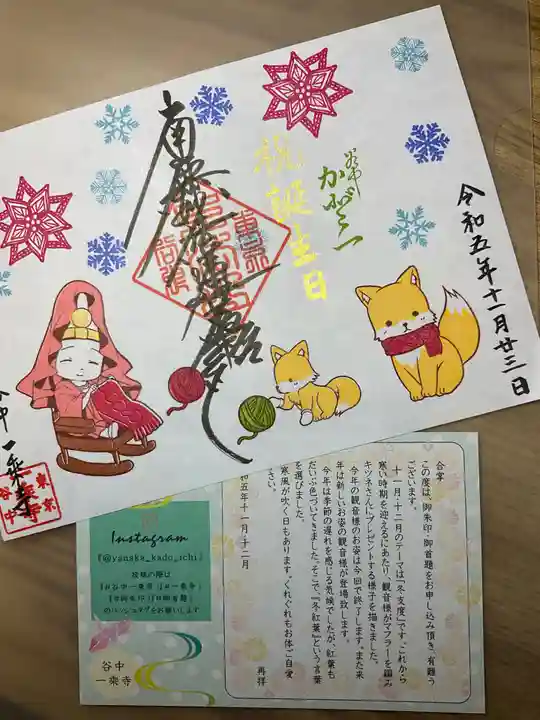 令和五年十一月廿三日
谷中
かど一
祝誕生日
南無妙法蓮華経
谷中一乗寺
合掌
この度は、御朱印・御首題をお申し込み頂き、有難う
ございます。
十一月・十二月のテーマは「冬支度」です。これから
寒い時期を迎えるにあたり、観音様がマフラーを編み
キツネさんにプレゼントする様子を描きました。
今年の観音様のお姿は今回で終了します。また来
年は新しいお姿の観音様が登場致します。
今年は季節の遅れを感じる気候でしたが、紅葉も
だいぶ色づいてきました。そこで、『冬紅葉』という言葉
を選びました。
寒風が吹く日もあります。くれぐれもお体ご自愛
下さい。
再拝
令和五年十一月・十二月
Instagram
『@yanaka_kado_ichi』
投稿の際は
『#谷中一乗寺』『#一乗寺』
『#御朱印』『#御首題』
のハッシュタグをお願いします
谷中
一乗寺